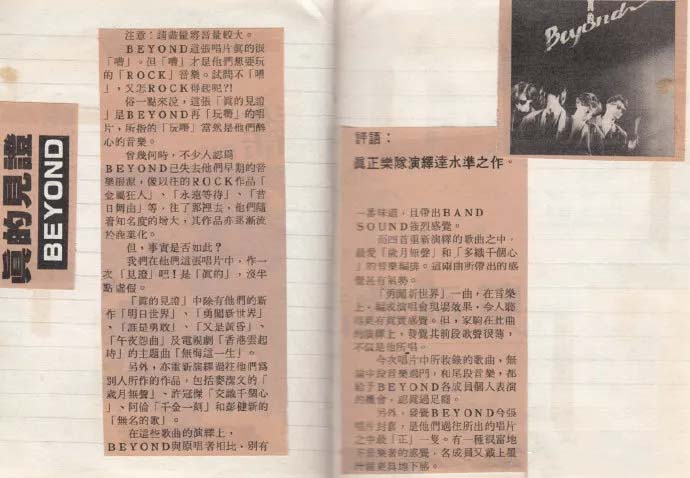 真的見證
BEYOND
注意:請盡量將音量較大。
BEYOND這張唱片真的很
「嘈」。但「嘈」才是他們想要玩
的「ROCK」音樂。試問不「嘈
」,又怎ROCK得起呢?!
俗一點來說,這張「真的見證
」是BEYOND再「玩嘢」的唱
片,所指的「玩嘢」當然是他們醉
心的音樂。
曾幾何時,不少人認爲
BEYOND已失去他們早期的音
樂根源,像以往的ROCK作品「
金屬狂人」、「永遠等待」、「昔
日舞曲」等,往了那裡去,他們隨
着知名度的增大,其作品亦逐漸流
於商業化。
但,事實是否如此?
我們在他們這張唱片中,作一
次「見證」吧!是「真的」,沒半
點虛假。
「真的見證」中除有他們的新
作「明日世界」、「勇闖新世界」
、「誰是勇敢」、「又是黃昏」、
「午夜怨曲」及電視劇「香港雲起
時」的主題曲「無悔這一生」。
另外,亦重新演繹過往他們爲
別人所作的作品,包括麥潔文的「
歲月無聲」、許冠傑「交織千個心
」、阿倫「千金一刻」和彭健新的
「無名的歌」。
在這些歌曲的演繹上,
BEYOND與原唱者相比,別有
Beyond
評語:
真正樂隊演繹達水準之作。
一番味道,且帶出BAND
SOUND強烈感覺。
而四首重新演繹的歌曲之中,
最愛「歲月無聲」和「多織千個心
」的音樂編排。這兩曲所帶出的感
覺甚有氣勢。
「勇闖新世界」一曲,在音樂
上,編成演唱會現場效果,令人聽
得更有真實感覺。但,家駒在此曲
的演繹上,發覺其前段歌聲很薄,
不似是他所唱。
今次唱片中所收錄的歌曲,無
論中段音樂過門,和尾段音樂,都
給予BEYOND各成員個人表演
的機會,認真過足癮。
另外,發覺BEYOND今張
唱片封套,是他們過往所出的唱片
之中最「正」一隻。有一種很富地
下音樂者的感覺,各成員又戴上墨
更具地下感。